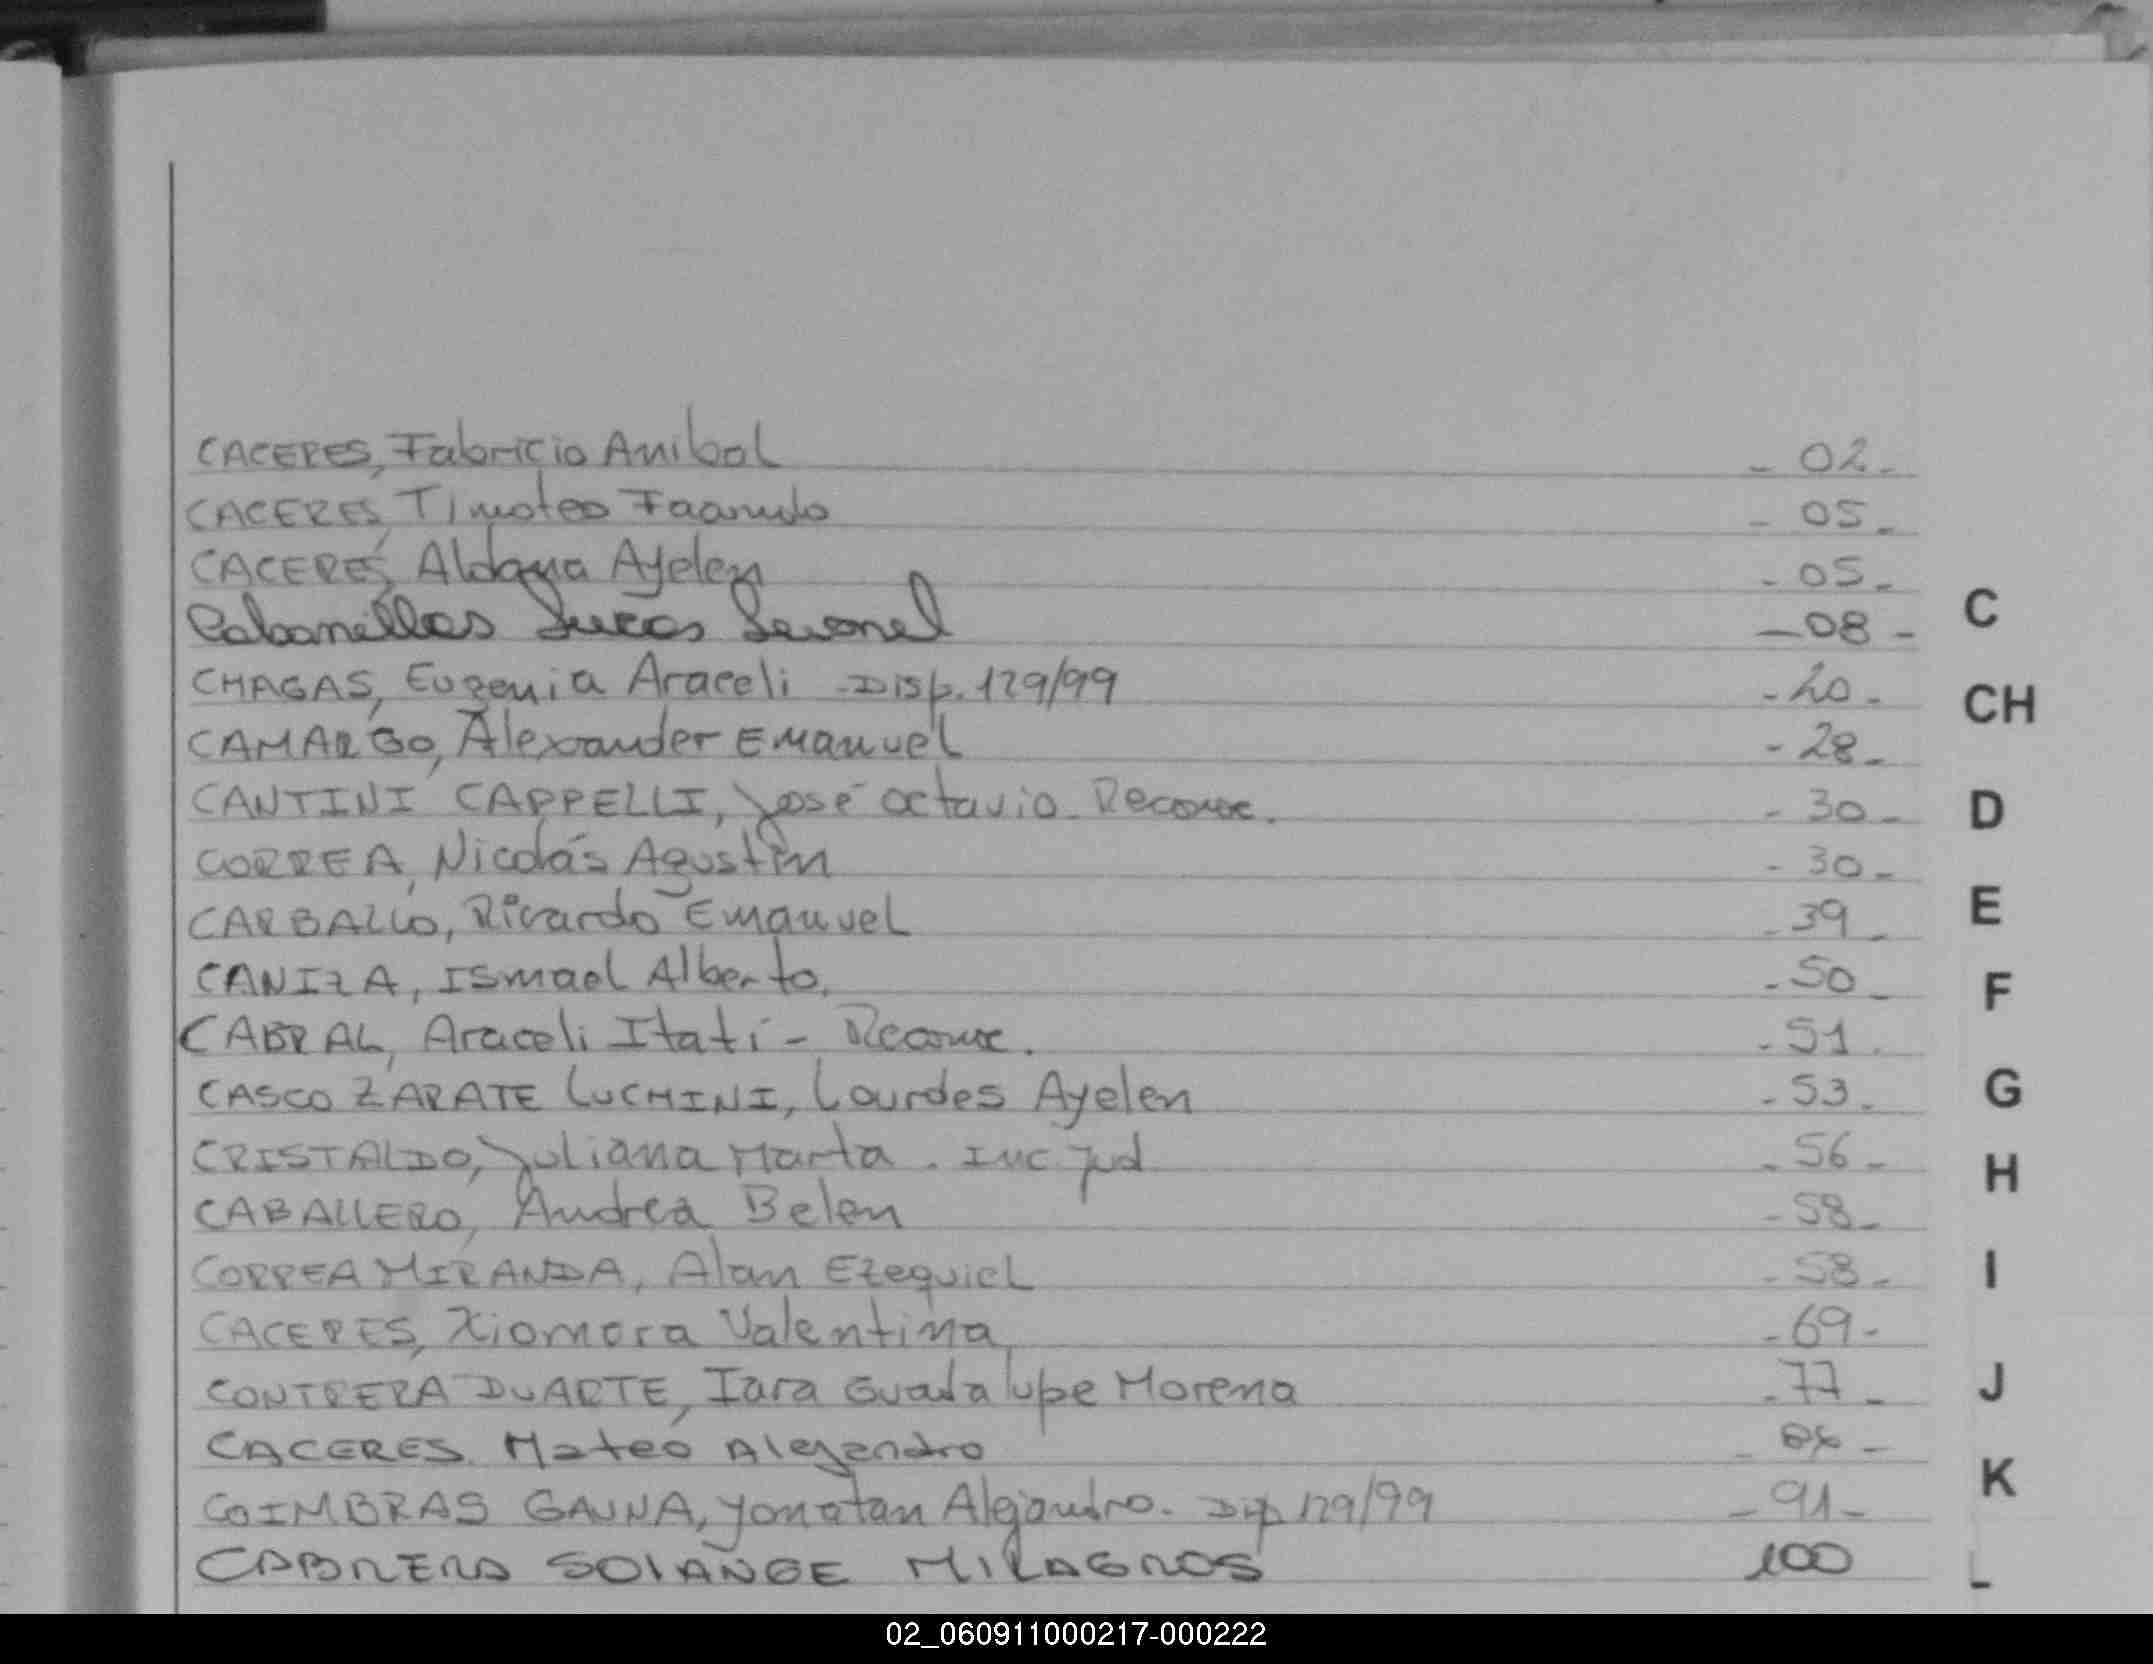 CACERES, Fabricio Anibal - 02 -
CACERES, Timoteo Facundo - 05 -
CACERES, Aldana Ayelen - 05 -
Cabanellas Lucas Leonel - 08 -
C
CHAGAS, Eugenia Araceli - Disp. 129/99 - 20 -
CH
CAMARGO, Alexander Emanuel - 28 -
CANTINI CAPPELLI, José Octavio - Reconoc. - 30 -
D
CORREA, Nicolás Agustín - 30 -
CARBALLO, Ricardo Emanuel - 39 -
E
CANIZA, Ismael Alberto. - 50 -
F
CABRAL, Araceli Itatí - Reconoc. - 51 -
CASCO ZARATE LUCHINI, Lourdes Ayelen - 53 -
G
CRISTALDO, Juliana Marta . Insc Jud - 56 -
H
CABALLERO, Andrea Belen - 58 -
CORREA MIRANDA, Alan Ezequiel - 58 -
I
CACERES, Xiomara Valentina - 69 -
CONTRERA DUARTE, Iara Guadalupe Morena - 77 -
J
CACERES. Mateo Alejandro
COIMBRAS GAUNA, Yonatan Alejandro - Disp 129/99 - 91 -
K
CABRERA SOLANGE MILAGROS 100
L
02_060911000217-000222